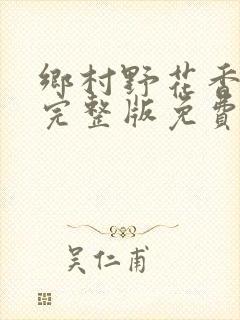 鄉村野花香
完整版免費
吴仁甫